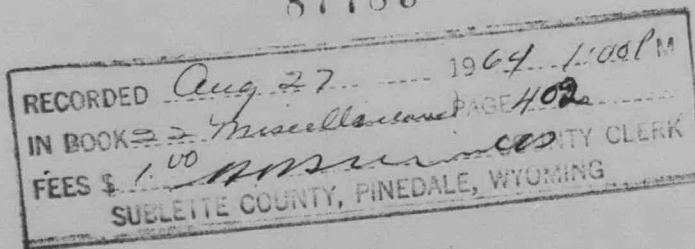 RECORDED Aug 27 1964 1:00 P M
IN BOOK 22 Miscellaneous PAGE 402
FEES $ 1.00 COUNTY CLERK
SUBLETTE COUNTY, PINEDALE, WYOMING